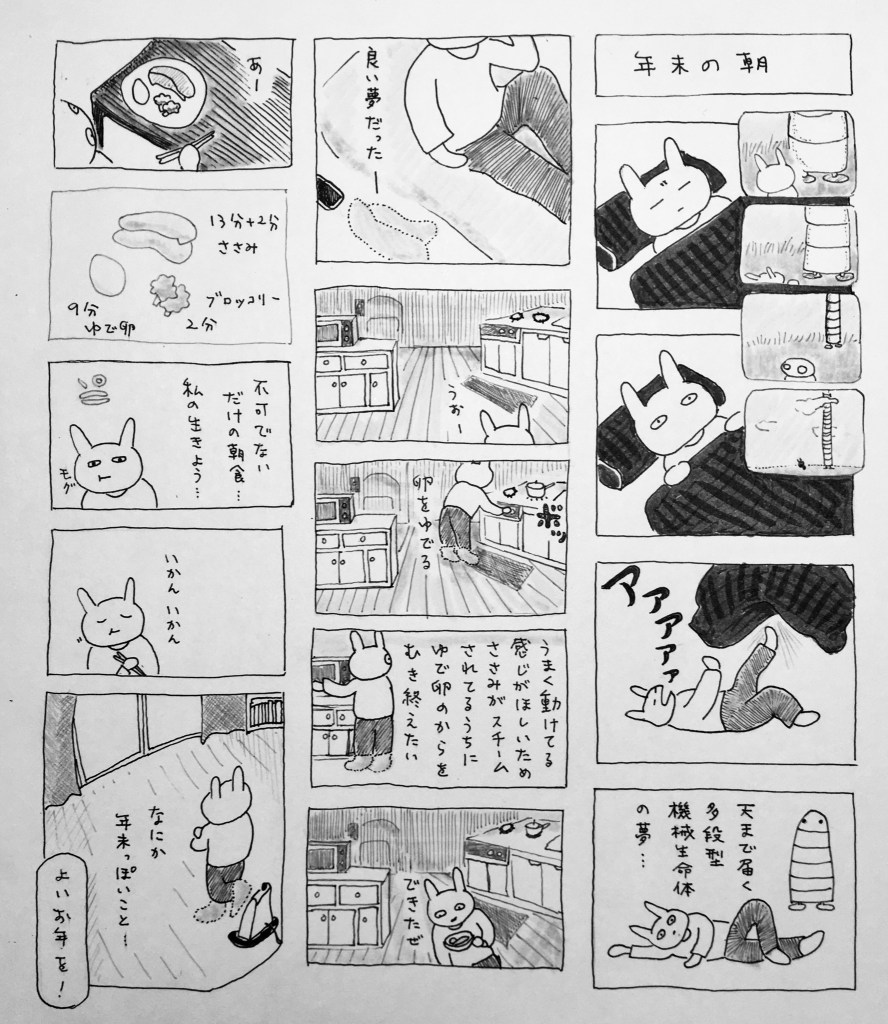 年末の朝
アアアアァァ
天まで届く
多段型
機械生命体
の夢…
良い夢だったー
うおー
ボッ
卵をゆでる
うまく動けてる
感じがほしいため
ささみがスチーム
されてるうちに
ゆで卵のからを
むき終えたい
できたぜ
あー
13分+2分
ささみ
ブロッコリー
2分
9分
ゆで卵
不可でない
だけの朝食…
私の生きよう…
モグ
いかんいかん
なにか
年末っぽいこと…
よいお年を!